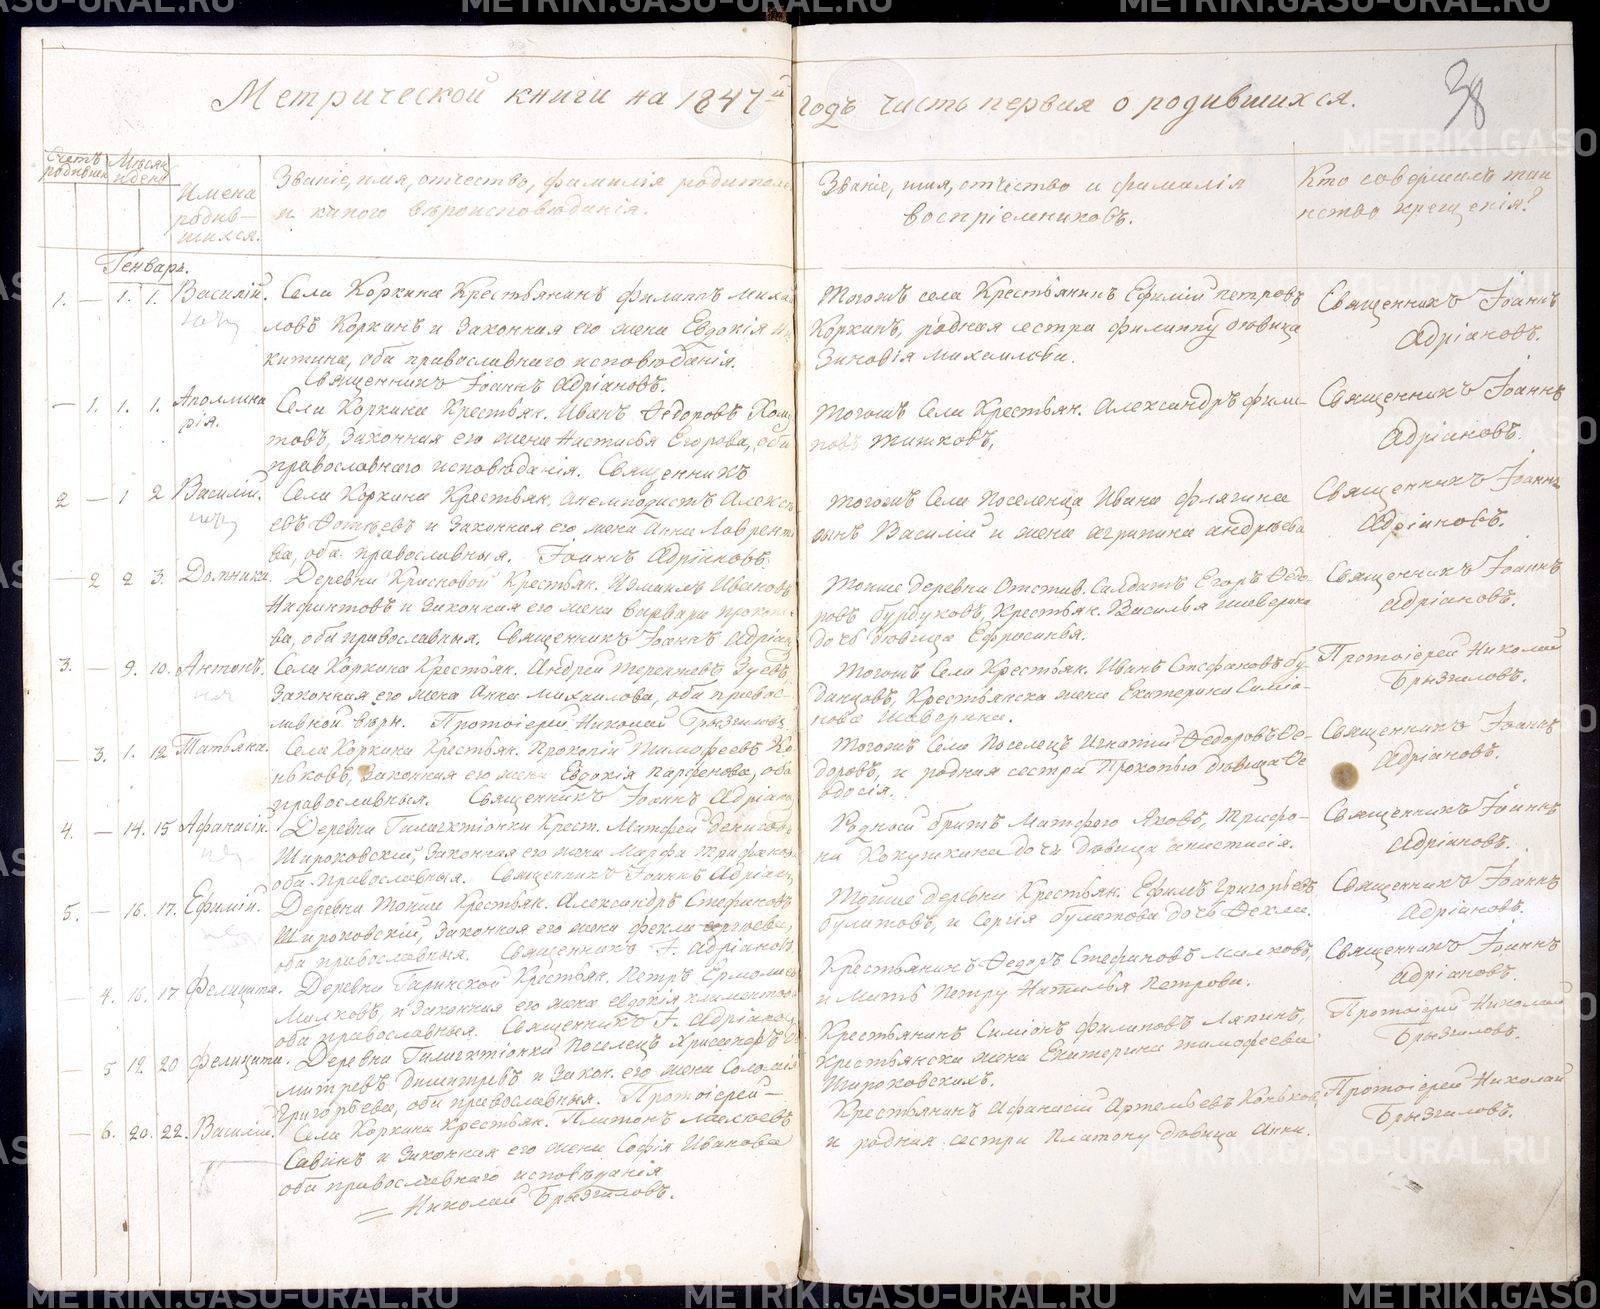 METRIKI.GASO-URAL.RU METRIKI.GASO-URAL.RU METRIKI.GASO-URAL.RU
38
Метрической книги на 1847й годъ часть первая о родившихся.
Счетъ родивших
Мѣсяцъ и день
Имена
родив-
шихся.
Званіе, имя, отчество, фамилія родителе
и какого вѣроисповѣданія.
Званіе, имя, отчество и фамилія
воспріемниковъ.
Кто совершалъ таи
нство крещенія?
Генварь.
1. — 1. 1. Василій. Села Коркина Крестьянинъ Филиппъ Миха
ловъ Коркинъ и законная его жена Евдокія Ни
китина, оба православнаго исповѣданія.
Священникъ Іоаннъ Адріановъ.
Тогожъ села Крестьянинъ Ефимій Петровъ
Коркинъ, родная сестра Филиппу дѣвица
Зиновія Михаилова.
Священникъ Іоаннъ
Адріановъ.
— 1. 1. 1. Аполлина
рія.
Села Коркина Крестьян. Иванъ Ѳедоровъ
товъ, законная его жена Настасья Егорова, оба
православнаго исповѣданія. Священникъ
Тогожъ Села Крестьян. Александръ Фили-
повъ Титковъ,
Священникъ Іоаннъ
Адріановъ.
2 — 1 2 Василій. Села Коркина Крестьян. Анемподистъ Алексѣ
евъ и законная его жена Анна Лаврентье
ва, оба православныя. Іоаннъ Адріановъ.
Тогожъ Села Поселенца Ивана Флягина
сынъ Василій и жена Агрипина Андрѣева
Священникъ Іоаннъ
Адріановъ.
— 2 2 3. Домника. Деревни Красновой Крестьян. Измаилъ Ивановъ
и законная его жена Варвара Прокопье
ва, оба православныя. Священникъ Іоаннъ Адріан
Тойже деревни Отстав. Салдатъ Егоръ Ѳедо
ровъ Бурдуковъ, Крестьян. Василья Шаверина
дочь дѣвица Ефросинья.
Священникъ Іоаннъ
Адріановъ.
3. — 9. 10. Антонъ. Села Коркина Крестьян. Андрей Терентьевъ Зуевъ,
законная его жена Анна Михаилова, оба правос-
лавной вѣры. Протоіерей Николай Брызгаловъ
Тогожъ Села Крестьян. Иванъ Стефановъ Бу-
данцовъ, Крестьянска жена Екатерина Симіо-
нова Шаверина.
Протоіерей Николай
Брызгаловъ.
— 3. 1. 12 Татьяна. Села Коркина Крестьян. Прокопій Тимофеевъ Ко
ньковъ, законная его жена Евдокія Парфенова, оба
православныя. Священникъ Іоаннъ Адріано
Тогожъ Села Поселецъ Игнатій Ѳедоровъ Ѳе-
доровъ, и родная сестра Прокопью дѣвица Ѳе
одосія.
Священникъ Іоаннъ
Адріановъ.
4. — 14. 15 Афанасій. Деревни Галактіонки Крест. Матфей Денисовъ
Широковскій, законная его жена Марфа Трифанова
оба православныя. Священникъ Іоаннъ Адріан
Родной братъ Матфею Яковъ, Трифо-
на Кокушкина дочь дѣвица Анастасія.
Священникъ Іоаннъ
Адріановъ.
5. — 16. 17. Ефимій. Деревни тойже Крестьян. Александръ Стефановъ
Широковскій, законная его жена Фекла Сергіева,
оба православныя. Священникъ І. Адріановъ
Тойже деревни Крестьян. Ефимъ Григорьевъ
Булатовъ, и Сергія Булатова дочь Ѳекла.
Священникъ Іоаннъ
Адріановъ.
— 4. 16. 17 Фелицата. Деревни Гаринской Крестьян. Петръ Ермолаев
Малковъ, и законная его жена Евдокія Климентова
оба православныя. Священникъ І. Адріанов
Крестьянинъ Ѳедоръ Стефановъ Малковъ,
и мать Петру Наталья Петрова.
Священникъ Іоаннъ
Адріановъ.
— 5 19. 20 Фелицата. Деревни Галактіонки Поселецъ Хрисанфъ
митревъ Димитревъ и закон. его жена Соломія
Григорьева, оба православныя. Протоіерей —
Крестьянинъ Симіонъ Филиповъ Ляпинъ,
Крестьянска жена Екатерина Тимофеева
Широковскихъ.
Протоіерей Николай
Брызгаловъ.
— 6. 20. 22. Василій. Села Коркина Крестьян. Платонъ
Савинъ и законная его жена Софія Иванова
оба православнаго исповѣданія
Николай Брызгаловъ.
Крестьянинъ Афанасій Артемьевъ Коньков,
и родная сестра Платону дѣвица Анна.
Протоіерей Николай
Брызгаловъ.
METRIKI.GASO-URAL.RU METRIKI.GASO-URAL.RU METRIKI.GASO